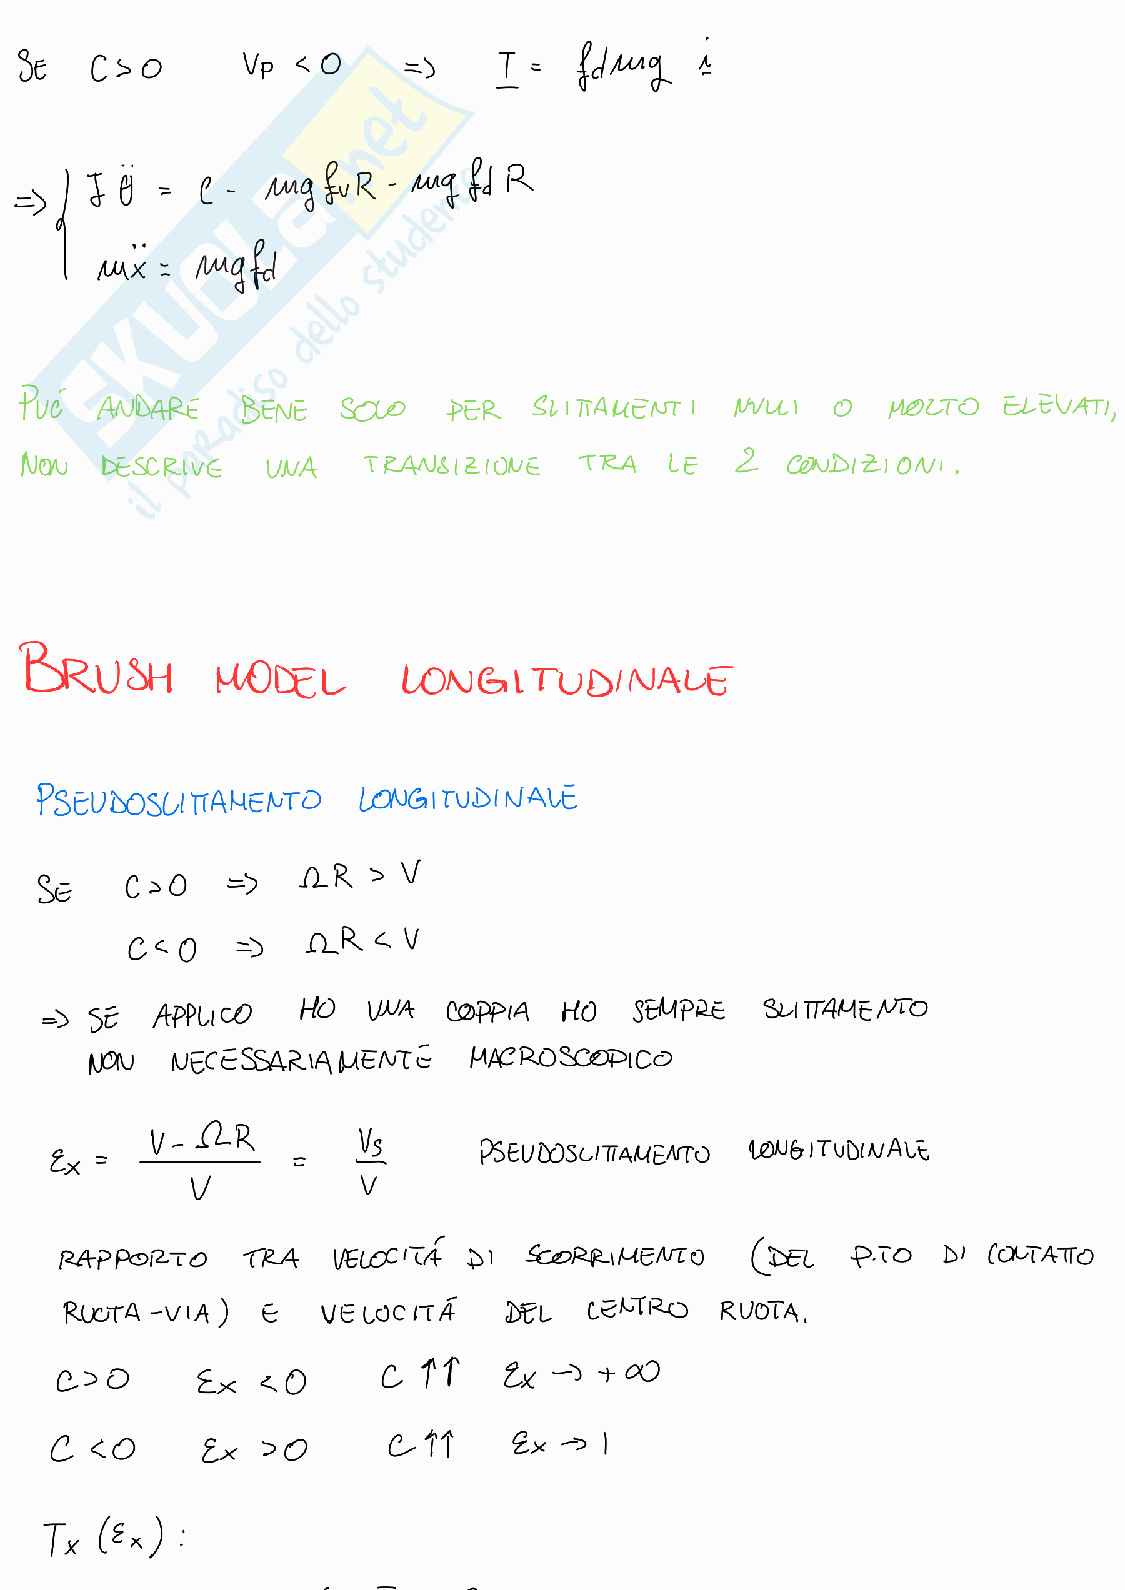 SE C>0 Vp <0 => T = fdmg i
=> { J θ̈ = C - mg fv R - mg fd R
mẍ = mg fd
PUÓ ANDARE BENE SOLO PER SLITTAMENTI NULLI O MOLTO ELEVATI,
NON DESCRIVE UNA TRANSIZIONE TRA LE 2 CONDIZIONI.
SKUOLA.net
il paradiso dello studente
BRUSH MODEL LONGITUDINALE
PSEUDOSLITTAMENTO LONGITUDINALE
SE C>0 => ΩR > V
C<0 => ΩR < V
=> SE APPLICO HO UNA COPPIA HO SEMPRE SLITTAMENTO
NON NECESSARIAMENTE MACROSCOPICO
εx = (V - ΩR) / V = Vs / V PSEUDOSLITTAMENTO LONGITUDINALE
RAPPORTO TRA VELOCITÁ DI SCORRIMENTO (DEL P.TO DI CONTATTO
RUOTA-VIA) E VELOCITÁ DEL CENTRO RUOTA.
C>0 εx <0 C ↑↑ εx → +∞
C <0 εx >0 C ↑↑ εx → 1
Tx (εx) :